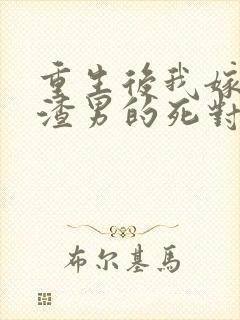 重生後我嫁
渣男的死對
布尔基馬